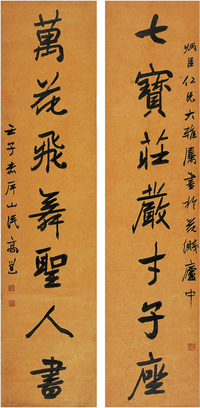 炳臣仁兄大雅属書於花
七寶莊嚴才子座
萬花飛舞聖人書
壬子赤屏山民高邕